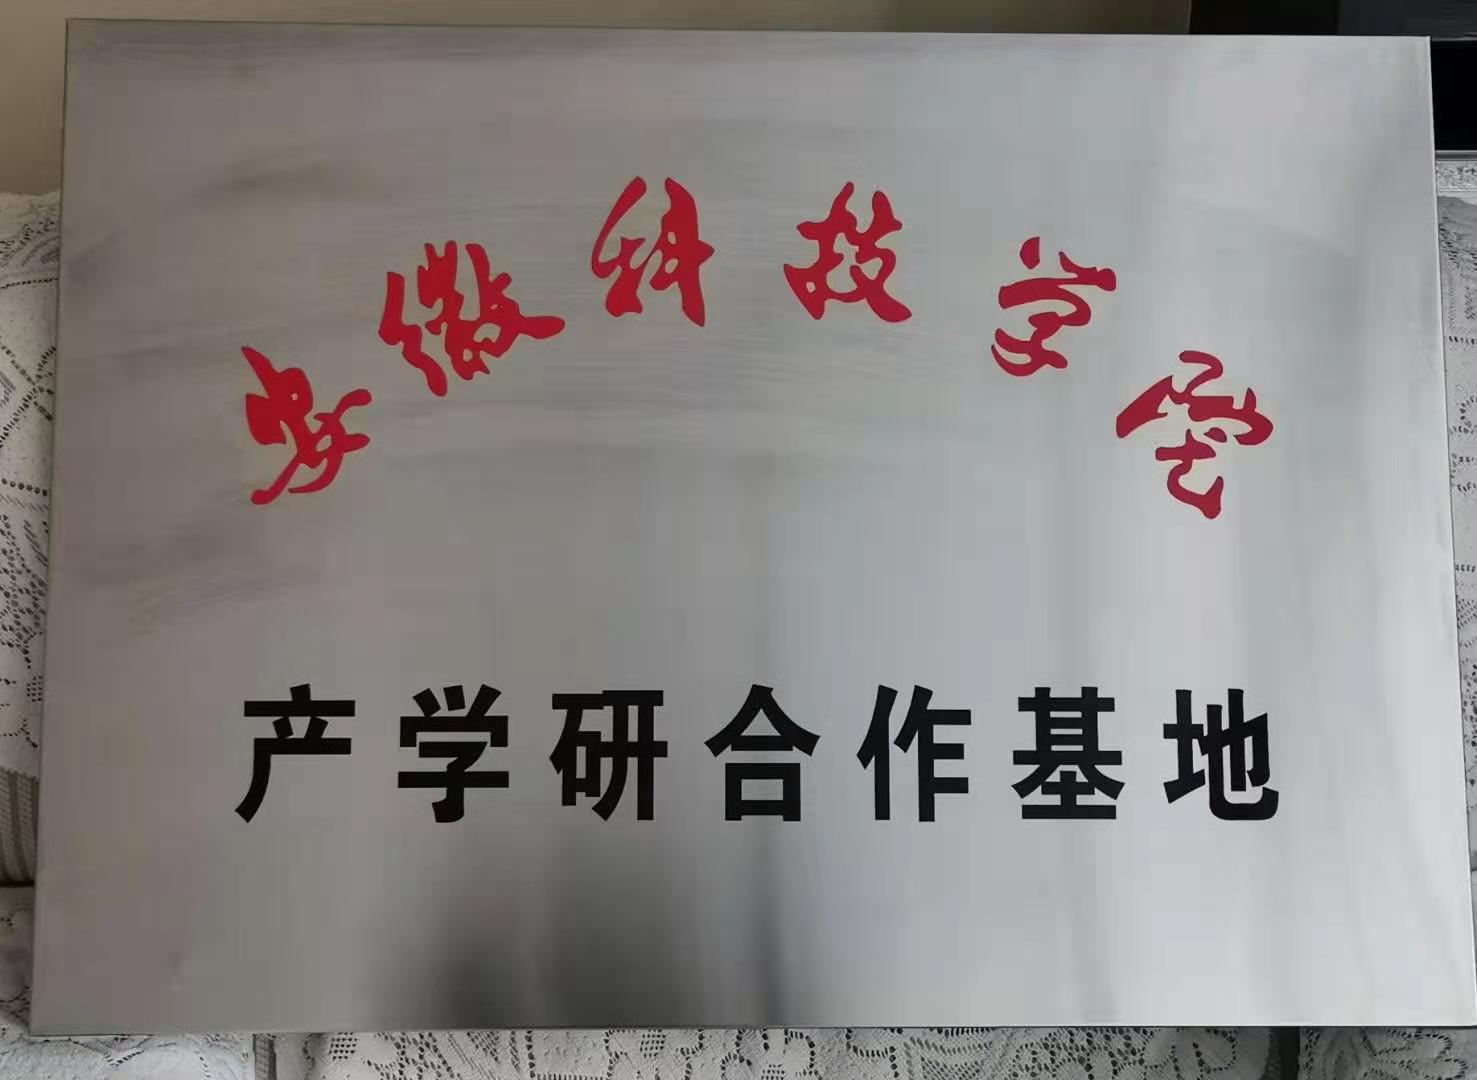 安徽科技学院
产学研合作基地